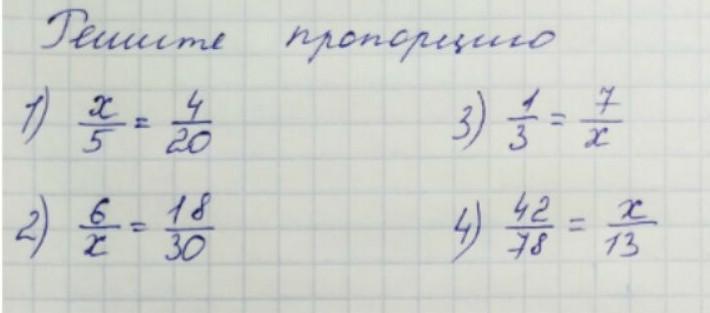 Решите пропорцию
1) x/5 = 4/20
3) 1/3 = 7/x
2) 6/x = 18/30
4) 42/78 = x/13